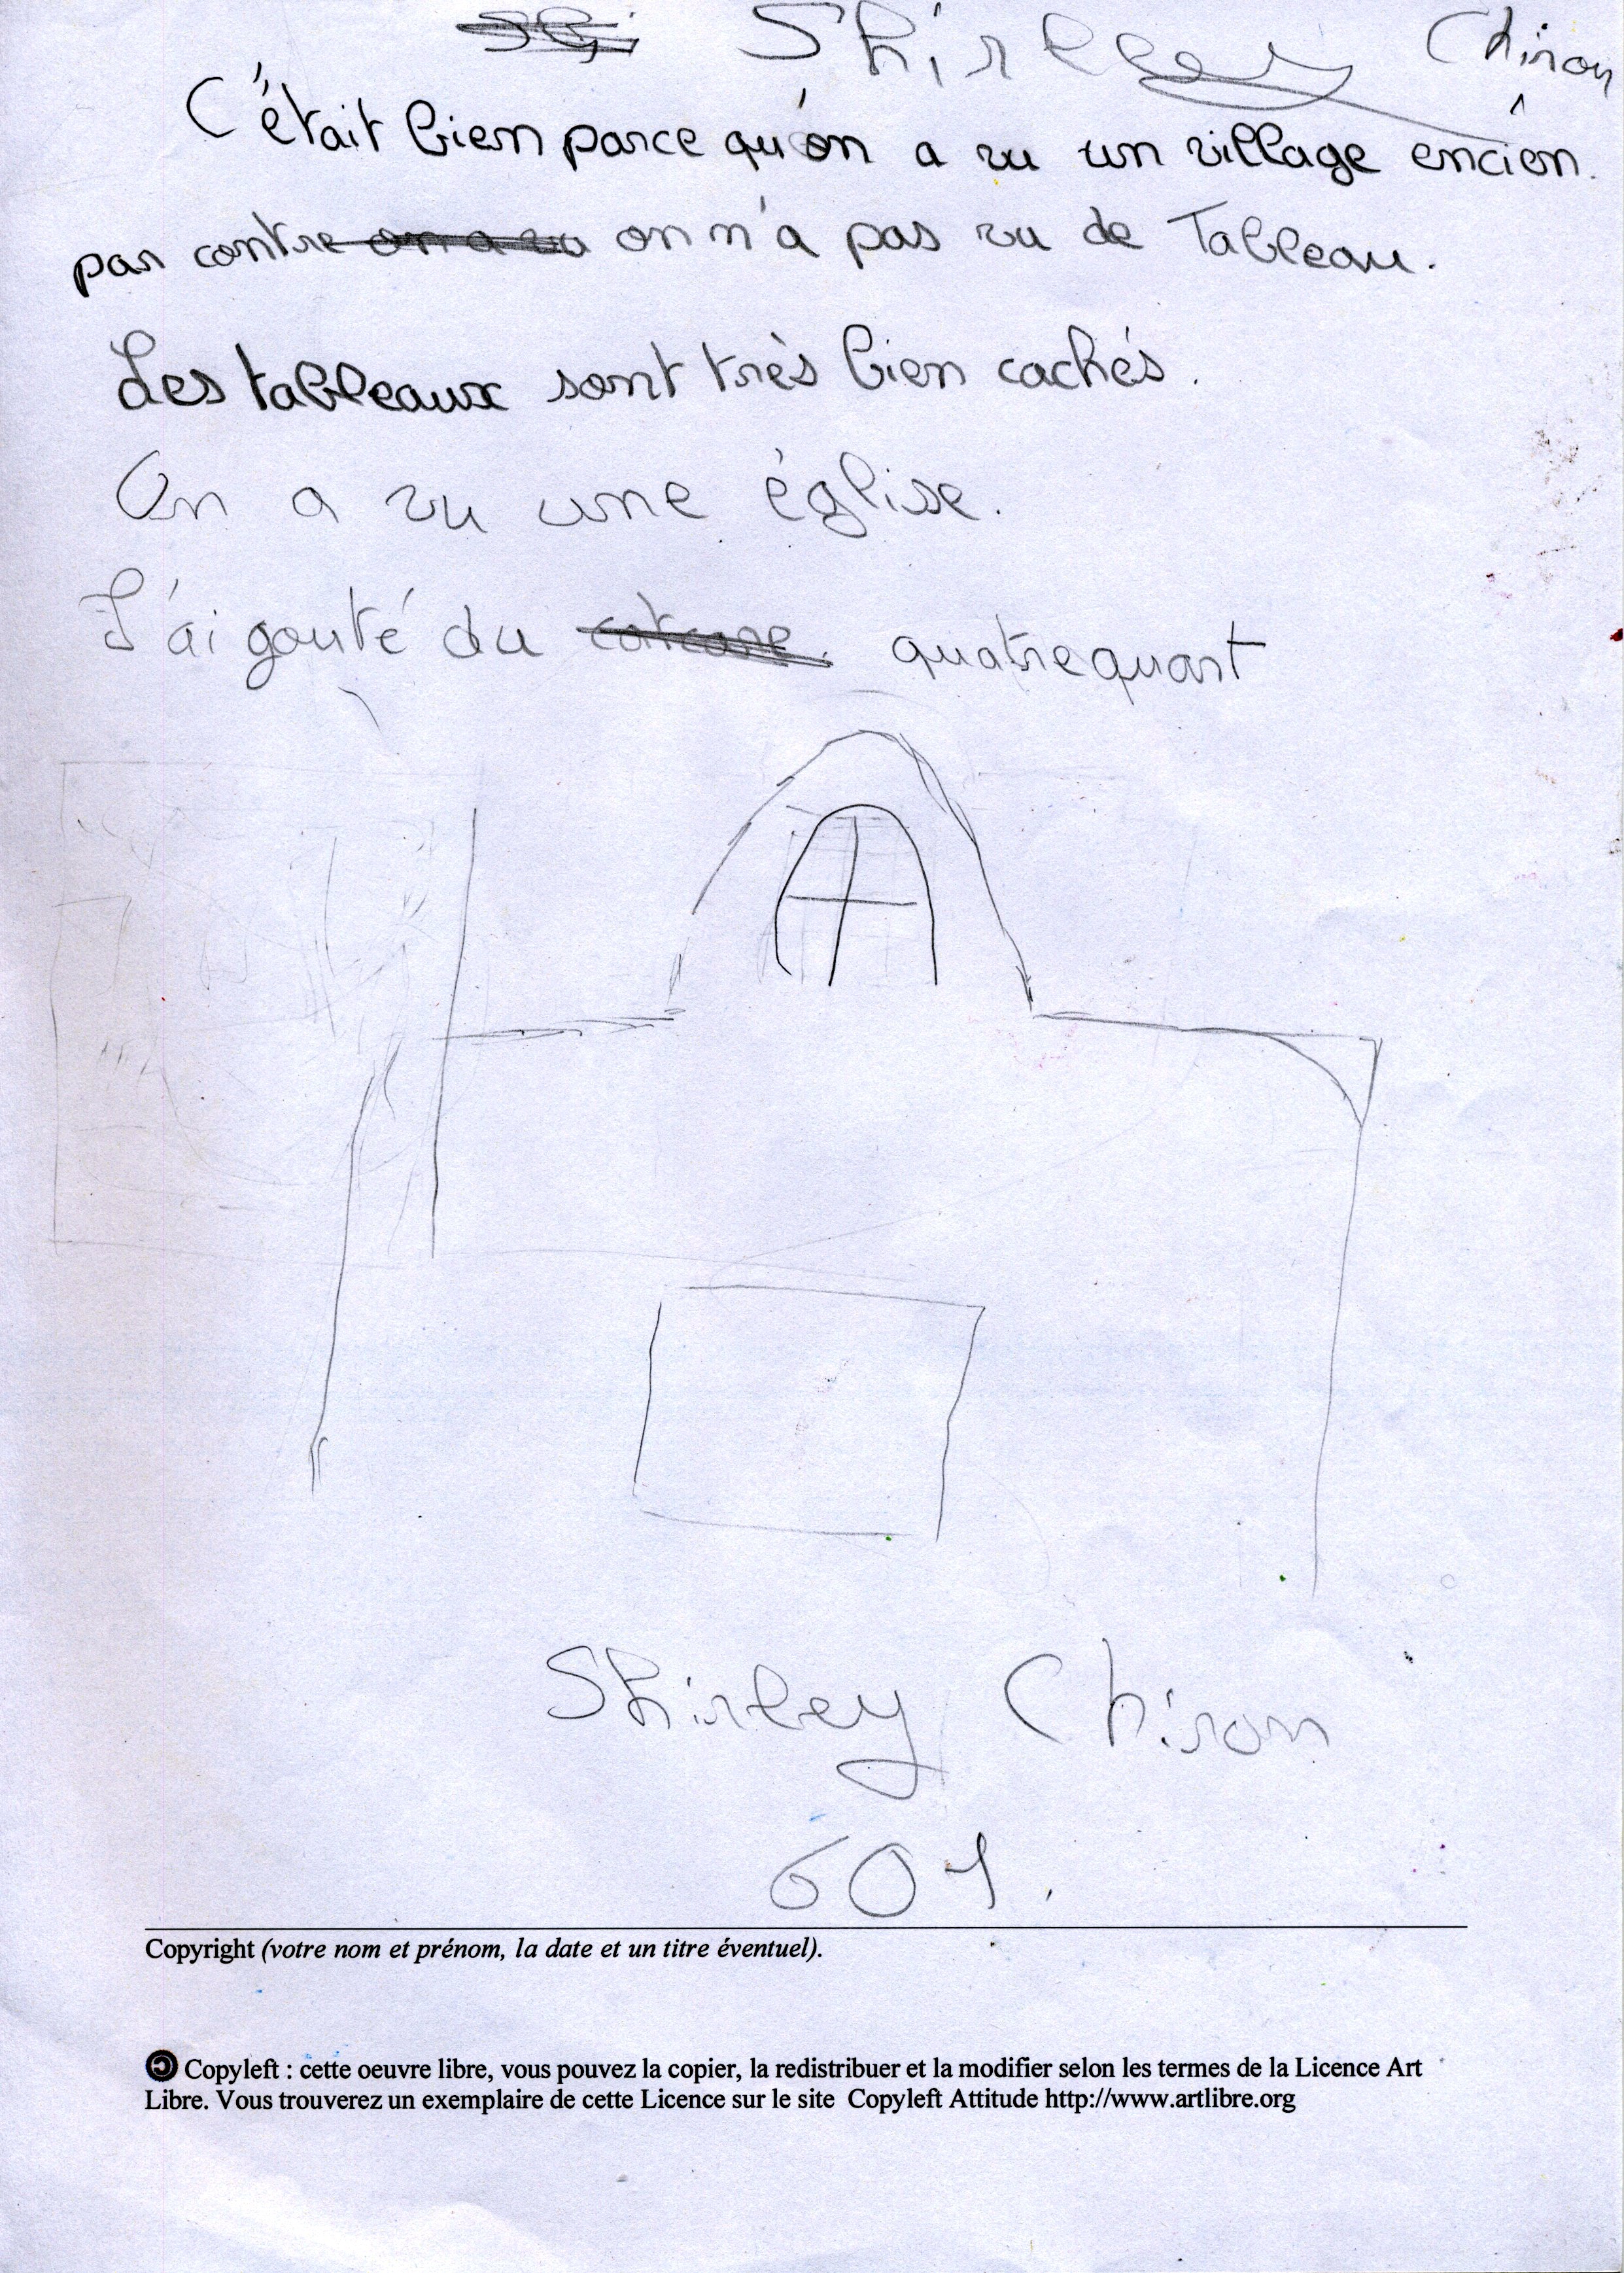 Shirley Chiron
C'était bien parce qu'on a vu un village encien.
par contre on a vu on n'a pas vu de Tableau.
Les tableaux sont très bien cachés.
On a vu une église.
J'ai gouté du quatrequart
Shirley Chiron
601.
Copyright (votre nom et prénom, la date et un titre éventuel).
Copyleft : cette oeuvre libre, vous pouvez la copier, la redistribuer et la modifier selon les termes de la Licence Art
Libre. Vous trouverez un exemplaire de cette Licence sur le site Copyleft Attitude http://www.artlibre.org